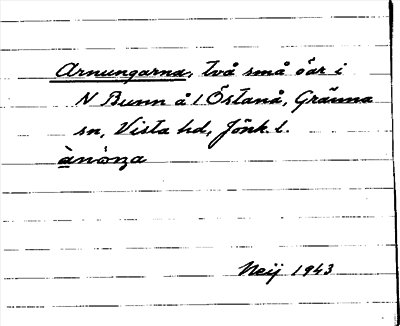 Arnungarna, två små öar i
N Bunn å 1 Östanå, Gränna
sn, Vista hd, Jönk. l.
Neij 1943